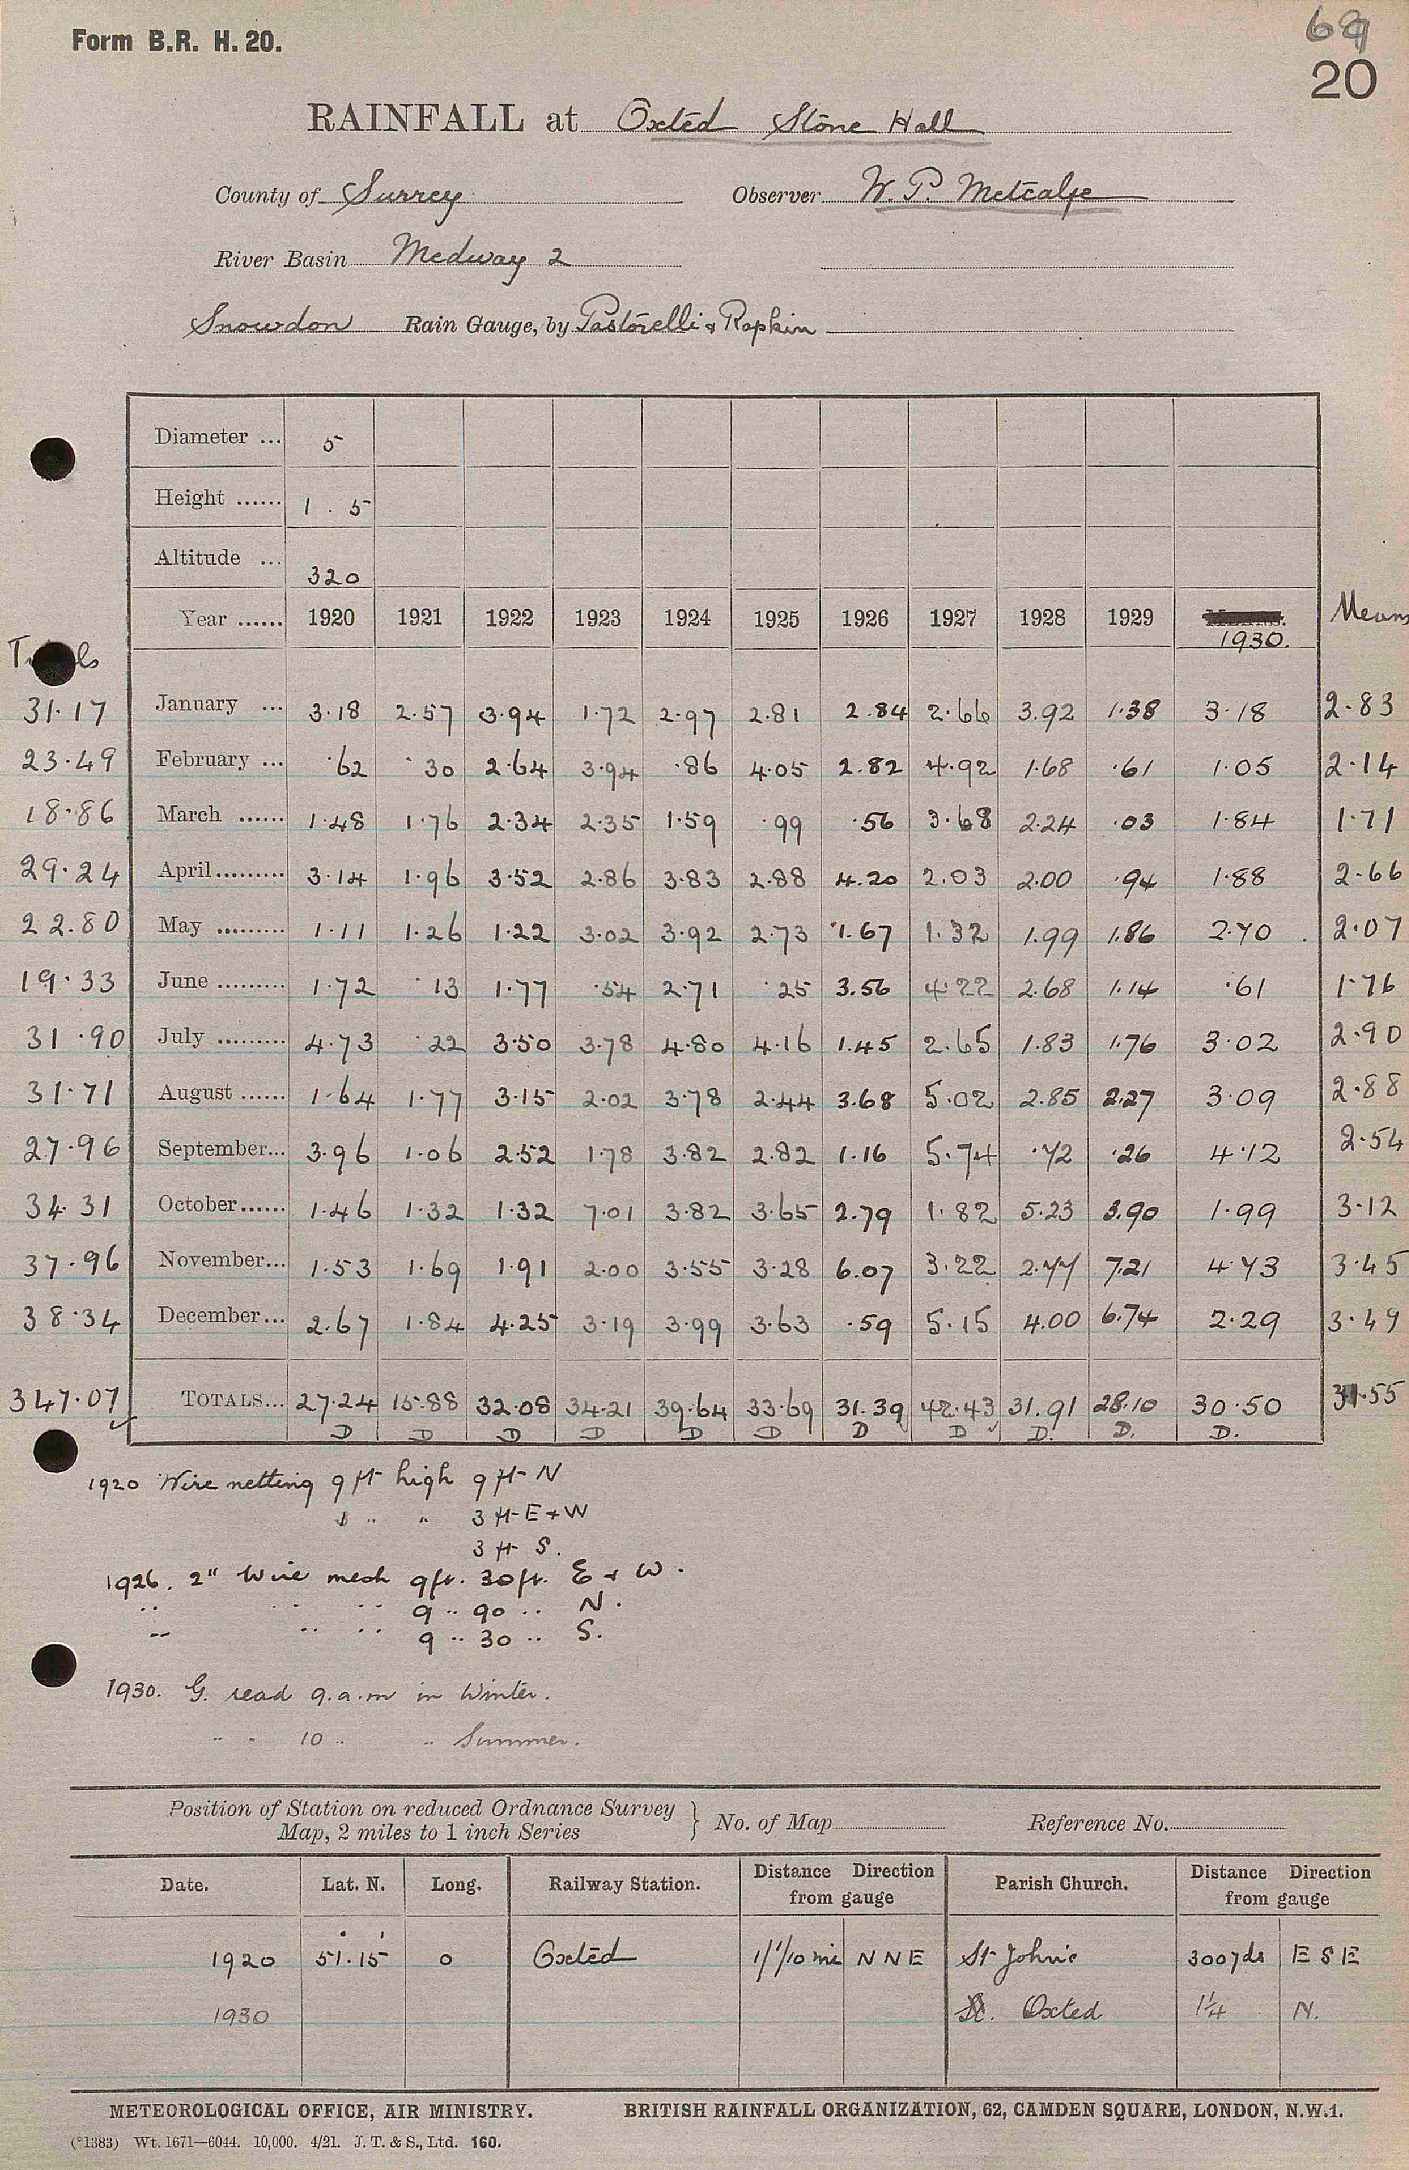 Form B.R. H. 20.
69
20
RAINFALL at Oxted Stone Hall
County of Surrey Observer W. P. Metcalfe
River Basin Medway 2
Snowdon Rain Gauge, by Pastorelli & Rapkin
Diameter ... 5
Height ...... 1 . 5
Altitude ... 320
Year ...... 1920 1921 1922 1923 1924 1925 1926 1927 1928 1929 1930. Means
31.17 January ... 3.18 2.57 3.94 1.72 2.97 2.81 2.84 2.66 3.92 1.38 3.18 2.83
23.49 February ... .62 .30 2.64 3.94 .86 4.05 2.82 4.92 1.68 .61 1.05 2.14
18.86 March ...... 1.48 1.76 2.34 2.35 1.59 .99 .56 3.68 2.24 .03 1.84 1.71
29.24 April ......... 3.14 1.96 3.52 2.86 3.83 2.88 4.20 2.03 2.00 .94 1.88 2.66
22.80 May ......... 1.11 1.26 1.22 3.02 3.92 2.73 1.67 1.32 1.99 1.86 2.70 2.07
19.33 June ......... 1.72 .13 1.77 .54 2.71 .25 3.56 4.22 2.68 1.14 .61 1.76
31.90 July ......... 4.73 .22 3.50 3.78 4.80 4.16 1.45 2.65 1.83 1.76 3.02 2.90
31.71 August ...... 1.64 1.77 3.15 2.02 3.78 2.44 3.68 5.02 2.85 2.27 3.09 2.88
27.96 September... 3.96 1.06 2.52 1.78 3.82 2.82 1.16 5.74 .72 .26 4.12 2.54
34.31 October...... 1.46 1.32 1.32 7.01 3.82 3.65 2.79 1.82 5.23 3.90 1.99 3.12
37.96 November... 1.53 1.69 1.91 2.00 3.55 3.28 6.07 3.22 2.77 7.21 4.73 3.45
38.34 December... 2.67 1.84 4.25 3.19 3.99 3.63 .59 5.15 4.00 6.74 2.29 3.49
347.07 TOTALS... 27.24 15.88 32.08 34.21 39.64 33.69 31.39 42.43 31.91 28.10 30.50 31.55
D D D D D D D D D. D. D.
1920 Wire netting 9 ft high 9 ft N
" " 3 ft E + W
3 ft S.
1926. 2" Wire mesh 9ft. 30ft. E + W.
" " " 9 " 90 " N.
" " " 9 " 30 " S.
1930. G. read 9.a.m in Winter.
" " 10 " " Summer.
Position of Station on reduced Ordnance Survey
Map, 2 miles to 1 inch Series } No. of Map Reference No.
Date. Lat. N. Long. Railway Station. Distance Direction from gauge Parish Church. Distance Direction from gauge
1920 51°.15' 0 Oxted 1 1/10 mi N N E St John's 300yds E S E
1930 Oxted 1¼ N.
METEOROLOGICAL OFFICE, AIR MINISTRY. BRITISH RAINFALL ORGANIZATION, 62, CAMDEN SQUARE, LONDON, N.W.1.
(*1383) Wt. 1671—6044. 10,000. 4/21. J. T. & S., Ltd. 160.